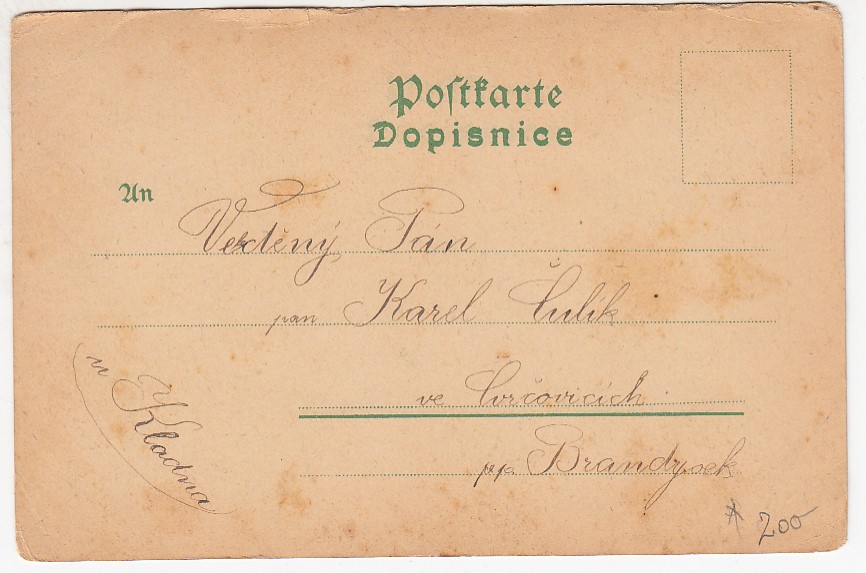 Postkarte
Dopisnice
An
Vectěný Pán
pan Karel Čulík
ve Cvrčovicích
pp. Brandýsek
u Kladna
* 200